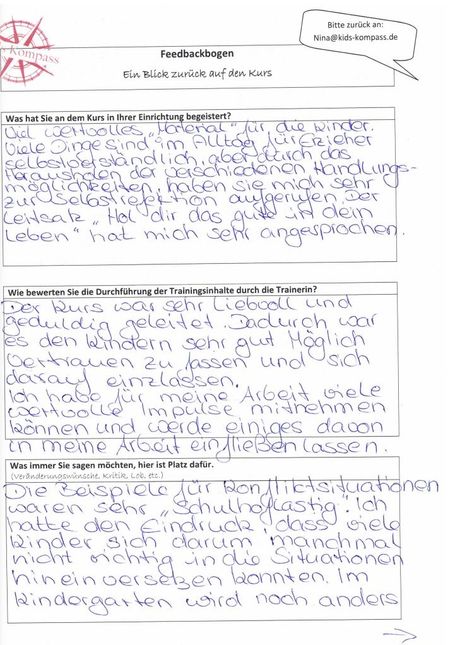 Kompass
Bitte zurück an:
Nina@kids-kompass.de
Feedbackbogen
Ein Blick zurück auf den Kurs
Was hat Sie an dem Kurs in Ihrer Einrichtung begeistert?
Viel wertvolles „Material" für die Kinder.
Viele Dinge sind im Alltag für Erzieher
selbstverständlich, aber durch das
Herausholen der verschiedenen Handlungs-
möglichkeiten, haben sie mich sehr
zur Selbstreflektion aufgerufen. Der
Leitsatz „Hol dir das gute in dein
Leben" hat mich sehr angesprochen.
Wie bewerten Sie die Durchführung der Trainingsinhalte durch die Trainerin?
Der Kurs war sehr Liebvoll und
geduldig geleitet. Dadurch war
es den Kindern sehr gut Möglich
Vertrauen zu fassen und sich
darauf einzlassen.
Ich habe für meine Arbeit viele
wertvolle Impulse mitnehmen
können und werde einiges davon
in meine Arbeit einfließen lassen.
Was immer Sie sagen möchten, hier ist Platz dafür.
(Veränderungswünsche, Kritik, Lob, etc.)
Die Beispiele für Konfliktsituationen
waren sehr „Schulhoflastig". Ich
hatte den Eindruck, dass viele
Kinder sich darum manchmal
nicht richtig in die Situationen
hineinversetzen konnten. Im
Kindergarten wird noch anders